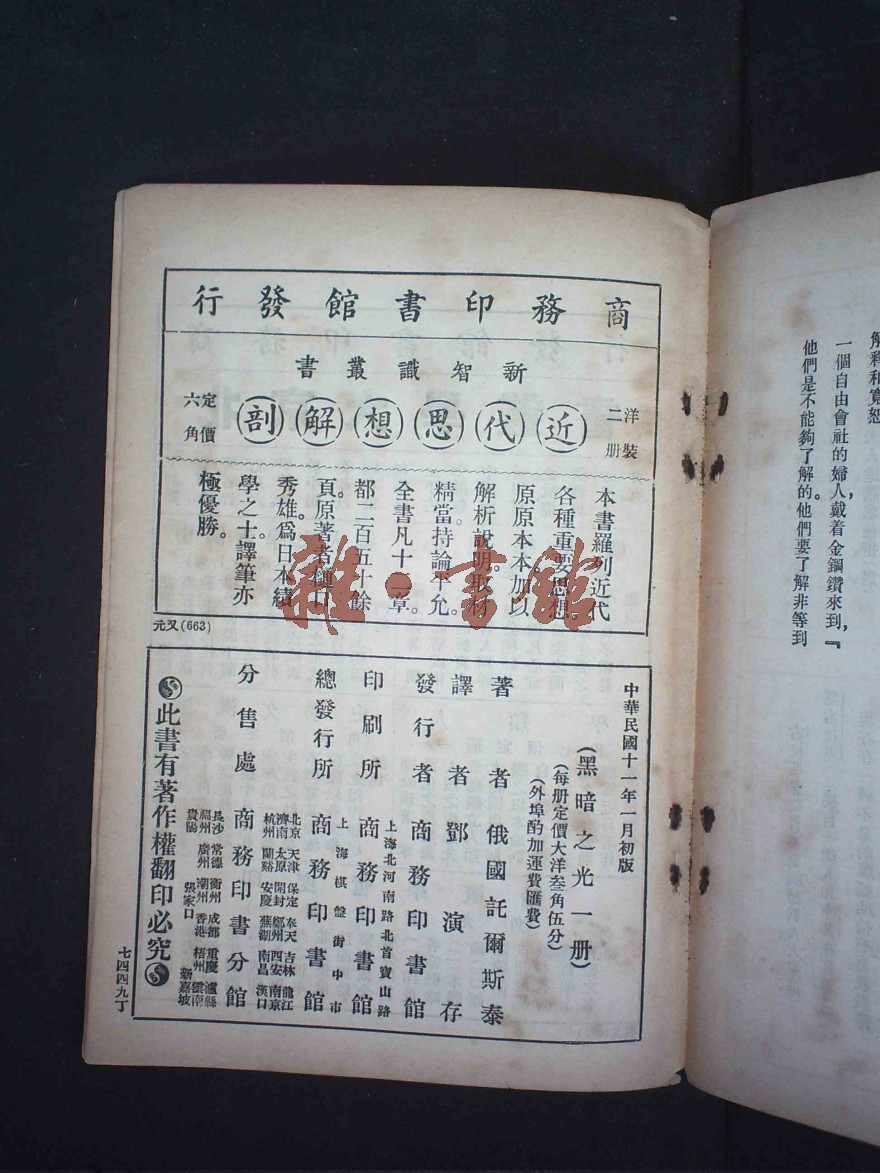 解釋和寬恕
一個自由會社的婦人，戴着金鋼鑽來到，『
他們是不能夠了解的。他們要了解非等到
商務印書館發行
新智識叢書
洋裝二册
近代思想解剖
定價六角
本書羅列近代
各種重要思想。
原原本本加以
解析說明。取材
精當。持論平允。
全書凡十一章。
都二百五十餘
頁。原著者樋口
秀雄。爲日本績
學之士。譯筆亦
極優勝。
元又(663)
中華民國十一年一月初版
(黑暗之光一册)
(每册定價大洋叁角伍分)
(外埠酌加運費匯費)
著者 俄國託爾斯泰
譯者 鄧演存
發行者 商務印書館
上海北河南路北首寶山路
印刷所 商務印書館
上海棋盤街中市
總發行所 商務印書館
北京 天津 保定 奉天 吉林 龍江
濟南 太原 開封 鄭州 西安 南京
杭州 蘭谿 安慶 蕪湖 南昌 漢口
分售處 商務印書分館
長沙 常德 衡州 成都 重慶 瀘縣
福州 廣州 潮州 香港 梧州 雲南
貴陽 張家口 新嘉坡
此書有著作權翻印必究
七四四九丁
雜·書館